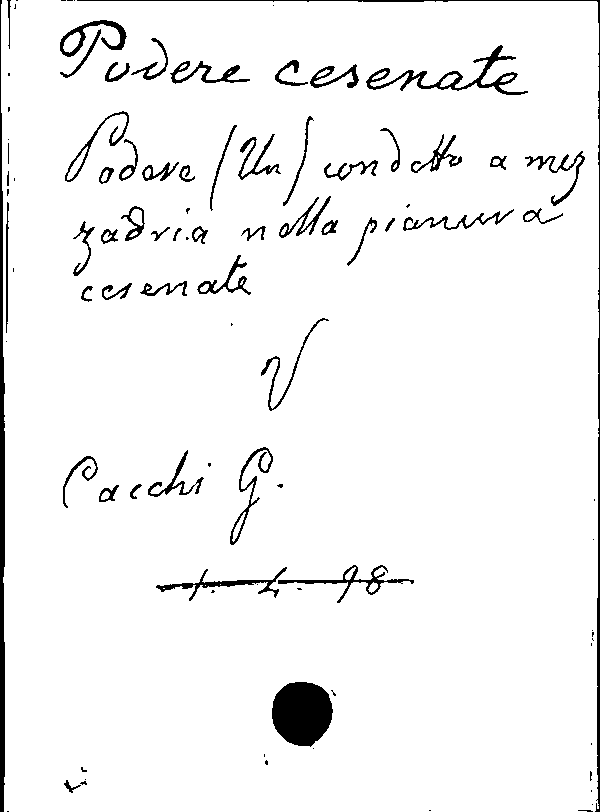 Podere cesenate
Podere (Un) condotto a mez
zadria nella pianura
cesenate
V
Cacchi G.
1. 4. 98